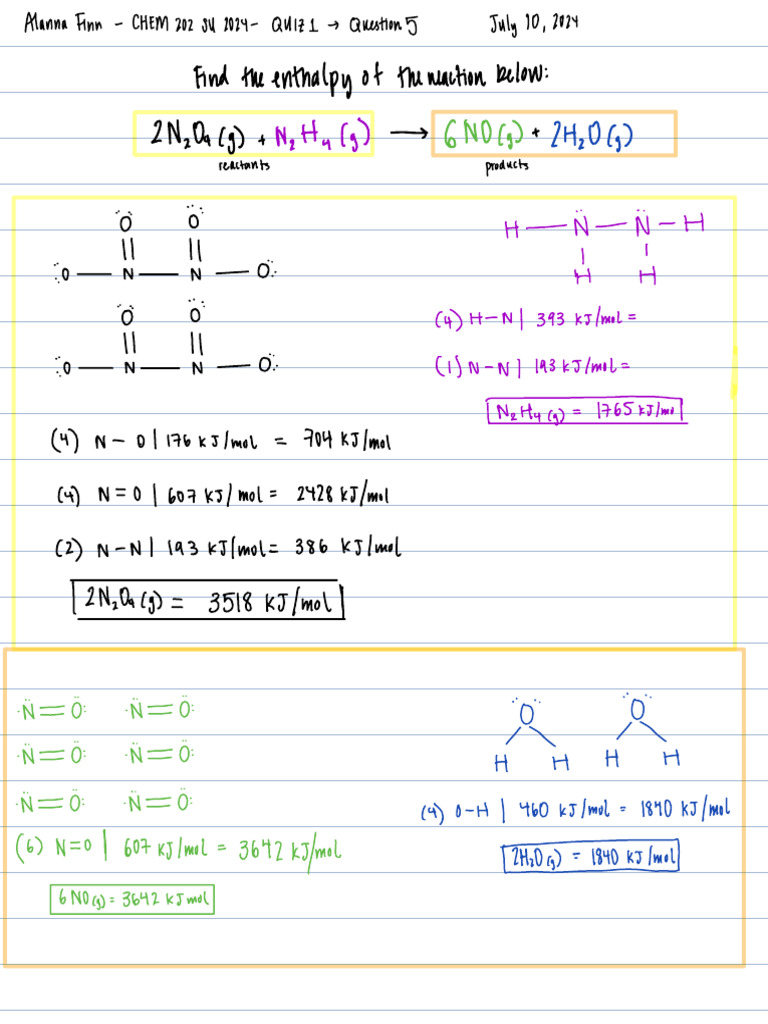 Alanna Finn – CHEM 202 SU 2024 – QUIZ 1 → Question 5 July 10, 2024
Find the enthalpy of the reaction below:
2N₂O₄(g) + N₂H₄(g) → 6NO(g) + 2H₂O(g)
reactants products
O O
O — N — N — O
O O
O — N — N — O
H — N — N — H
H H
(4) H–N | 393 kJ/mol =
(1) N–N | 193 kJ/mol =
N₂H₄(g) = 1765 kJ/mol
(4) N–O | 176 kJ/mol = 704 kJ/mol
(4) N=O | 607 kJ/mol = 2428 kJ/mol
(2) N–N | 193 kJ/mol = 386 kJ/mol
2N₂O₄(g) = 3518 kJ/mol
·N̈=Ö: ·N̈=Ö:
·N̈=Ö: ·N̈=Ö:
·N̈=Ö: ·N̈=Ö:
(6) N=O | 607 kJ/mol = 3642 kJ/mol
6NO(g) = 3642 kJmol
O O
H H H H
(4) O–H | 460 kJ/mol = 1840 kJ/mol
2H₂O(g) = 1840 kJ/mol